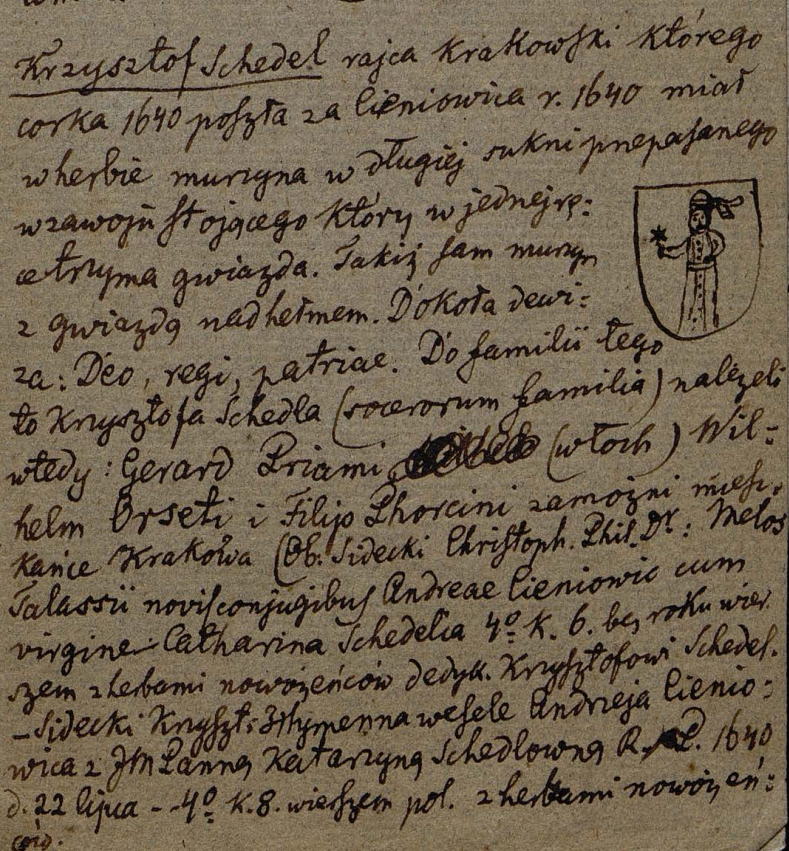 Krzysztof Schedel rajca Krakowski którego
corka 1640 poszła za Cieniowica r. 1640 miał
w herbie murzyna w długiej sukni przepasanego
w zawoju stojącego który w jednej rę:
ce trzyma gwiazda. Takiż sam murzyn
z gwiazdą nad hełmem. Dokoła dewi:
za: Deo, regi, patriae. Do familii tego
to Krzysztofa Schedla (socerorum familia) należeli
wtedy: Gerard Priami (włoch) Wil:
helm Orseti i Filip Phorcini zamożni miesz:
kańce Krakowa (Ob: Sidecki Christoph. Phil. Dr: Melos
Talassii novis conjugibus Andreae Cieniowic cum
virgine Catharina Schedelia 4º K. 6. bez roku wier
szem z herbami nowożeńców dedyk. Krzysztofowi Schedel.
– Sidecki Krzyszt: na wesele Andrzeja Cienio:
wica z JM Panną Katarzyną Schedlowną R. P. 1640
d. 22 lipca – 4º K. 8. wierszem pol. z herbami nowożeń:
ców.